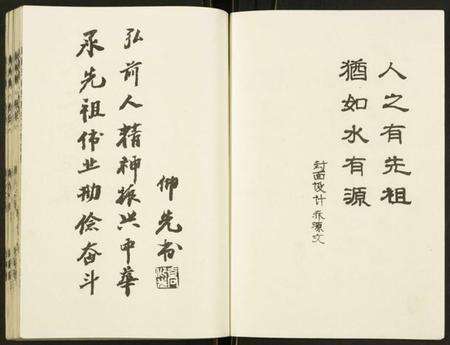 人之有先祖
猶如水有源
封面设计
承先祖伟业勤俭奋斗
弘前人精神振兴中华
仰先书